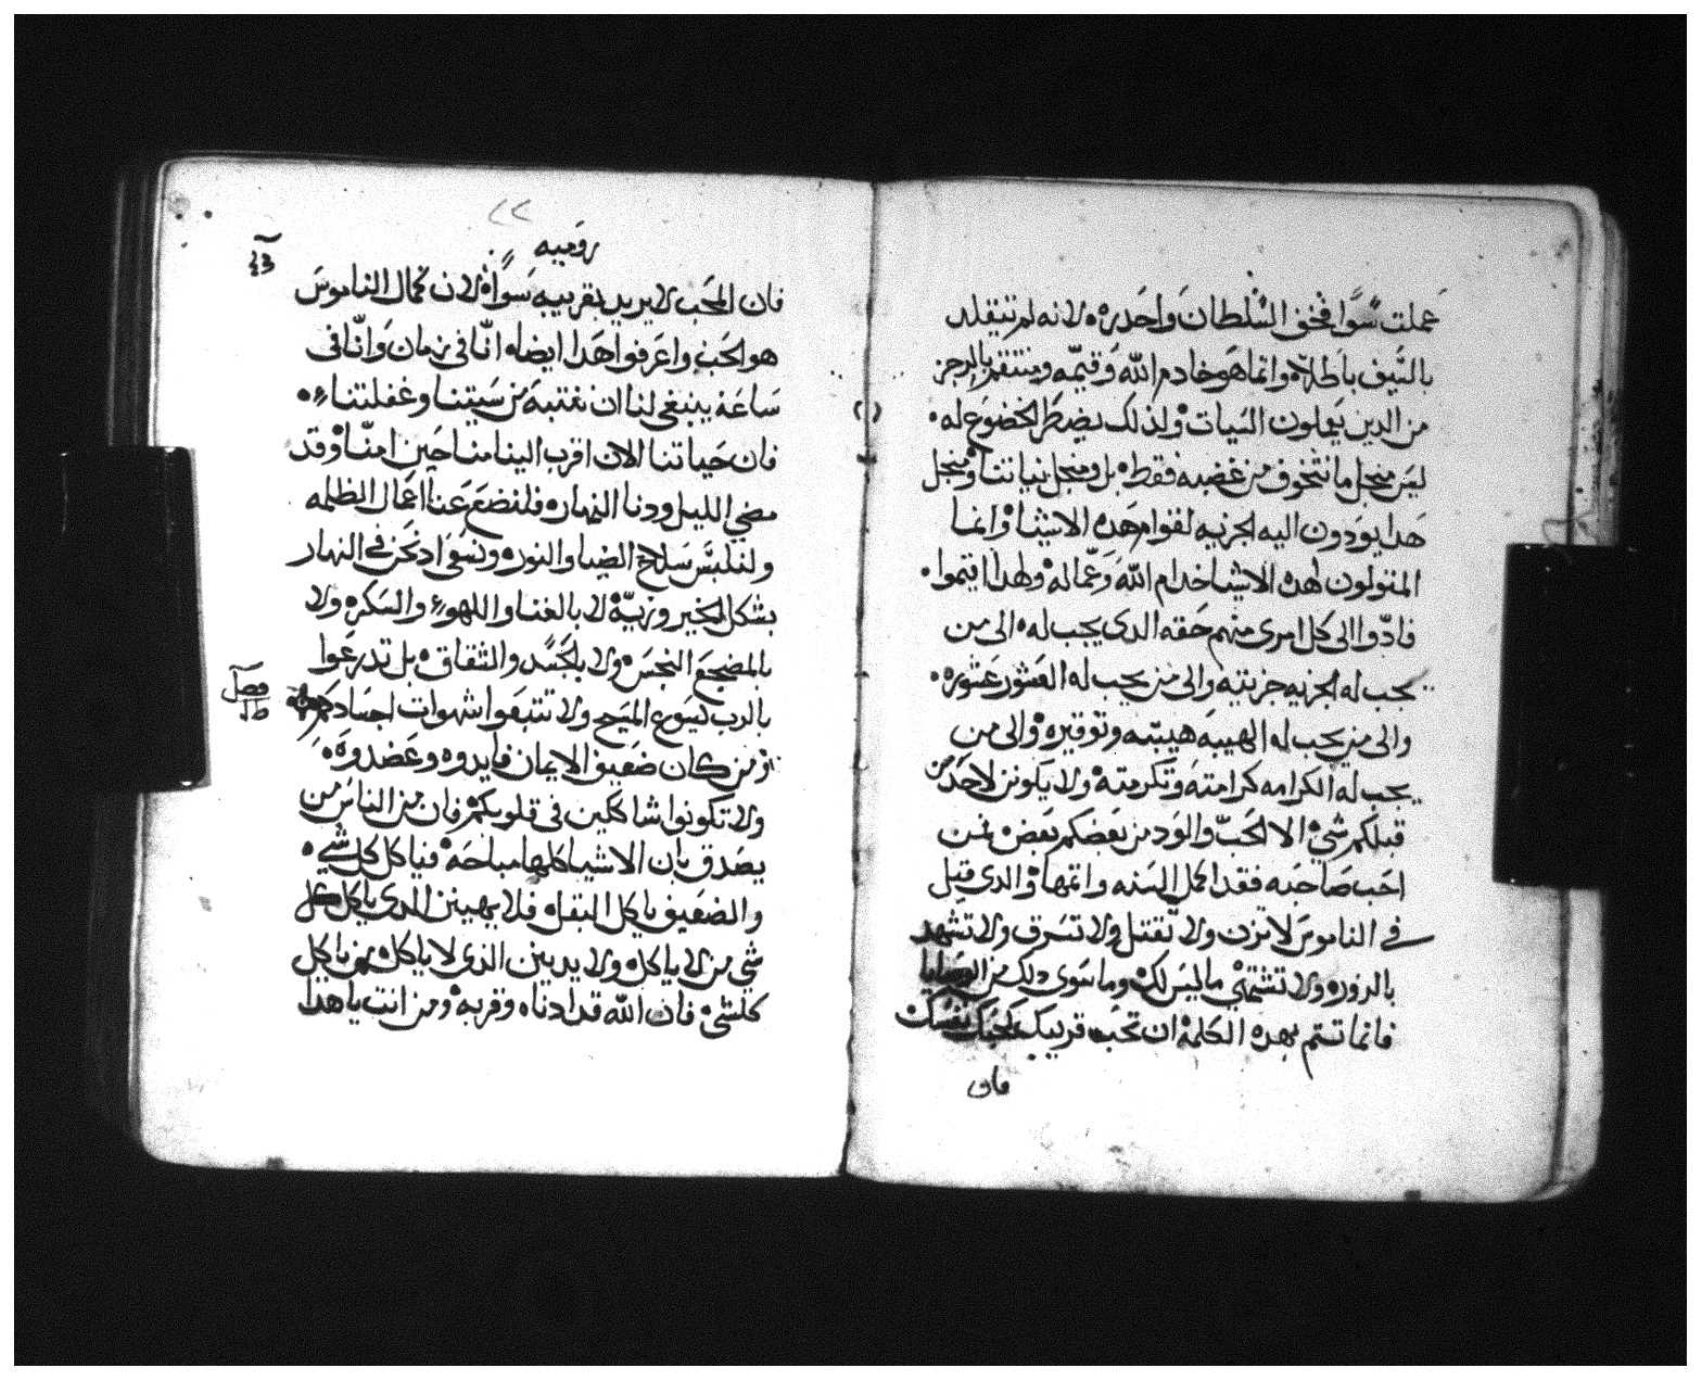 عملت سوًا فخف السلطان واحدره لانه لم تتيقلد
بالسيف باطلا وانما هو خادم الله وقيمه وينتقم بالرجز
من الدين يعملون السيات ولذلك يضطر الخضوع له
ليس منجل ما نتخوف من غضبه فقط بل ومنجل نياتنا ومنجل
هدا يودون اليه الجزيه لقوام هده الاشيا وانما
المتولون لهده الاشيا خدام الله وعماله ولهدا ايتموا
فادوا الى كل امرى منهم حقه الدى يجب له الى من
يجب له الجزيه جزيته والى من يجب له العشور عشوره
والى من يجب له الهيبه هيبته وتوقيره والى من
يجب له الكرامه كرامته وتكرمته ولا يكونن لاحد من
قبلكم شي الا الحب والود من بعضكم بعض فمن
احب صاحبه فقد اكمل السنه واتمها والدى قيل
في الناموس لا تزن ولا تقتل ولا تسرق ولا تشهد
بالزور ولا تشتهي ما ليس لك وما سوى دلك من الوصايا
فانما تتم بهده الكلمة ان تحب قريبك كحبك نفسك
فان
روميه
فان المحب لا يريد بقريبه سواً لان كمال الناموس
هو الحب واعرفوا هدا ايضا انا في زمان وانا في
ساعة ينبغي لنا ان ننتبه من سيتنا وغفلتنا
فان حياتنا الان اقرب الينا منا حين امنا وقد
مضي الليل ودنا النهار فلنضع عنا اعمال الظلمه
ولنلبس سلاح الضيا والنور ونسعى اد نحن في النهار
بشكل الخير وزيه لا بالغنا واللهو والسكر ولا
بالمضجع النجس ولا بالحسد والشقاق بل تدرعوا
بالرب يسوع المسيح ولا تتبعوا شهوات اجسادكم
فصل
ومن كان ضعيف الايمان فايدوه وعضدوه
ولا تكونوا شاكين في قلوبكم فان من الناس من
يصدق بان الاشيا كلها مباحه فياكل كل شي
والضعيف ياكل البقل فلا يهينن الدى ياكل كل
شي من لا ياكل ولا يدينن الذى لا ياكل من ياكل
كلشي فان الله قد ادناه وقربه ومن انت يا هذا